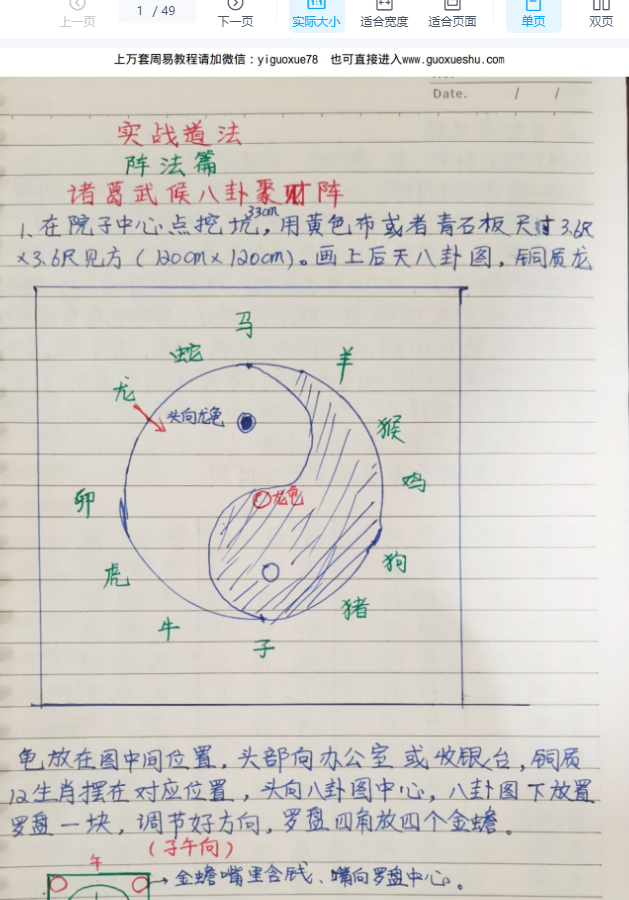 上一页
1 / 49
下一页
实际大小
适合宽度
适合页面
单页
双页
上万套周易教程请加微信：yiguoxue78 也可直接进入www.guoxueshu.com
Date. / /
实战道法
阵法篇
诸葛武候八卦聚财阵
33cm
1、在院子中心点挖坑，用黄色布或者青石板尺寸3.6尺
×3.6尺见方（120cm×120cm）。画上后天八卦图，铜质龙
马
蛇
羊
龙
头向龙龟
猴
鸡
卯
龙龟
狗
虎
猪
牛
子
龟放在图中间位置，头部向办公室或收银台，铜质
12生肖摆在对应位置，头向八卦图中心，八卦图下放置
罗盘一块，调节好方向，罗盘四角放四个金蟾。
（子午向）
午
金蟾嘴里含钱、嘴向罗盘中心。